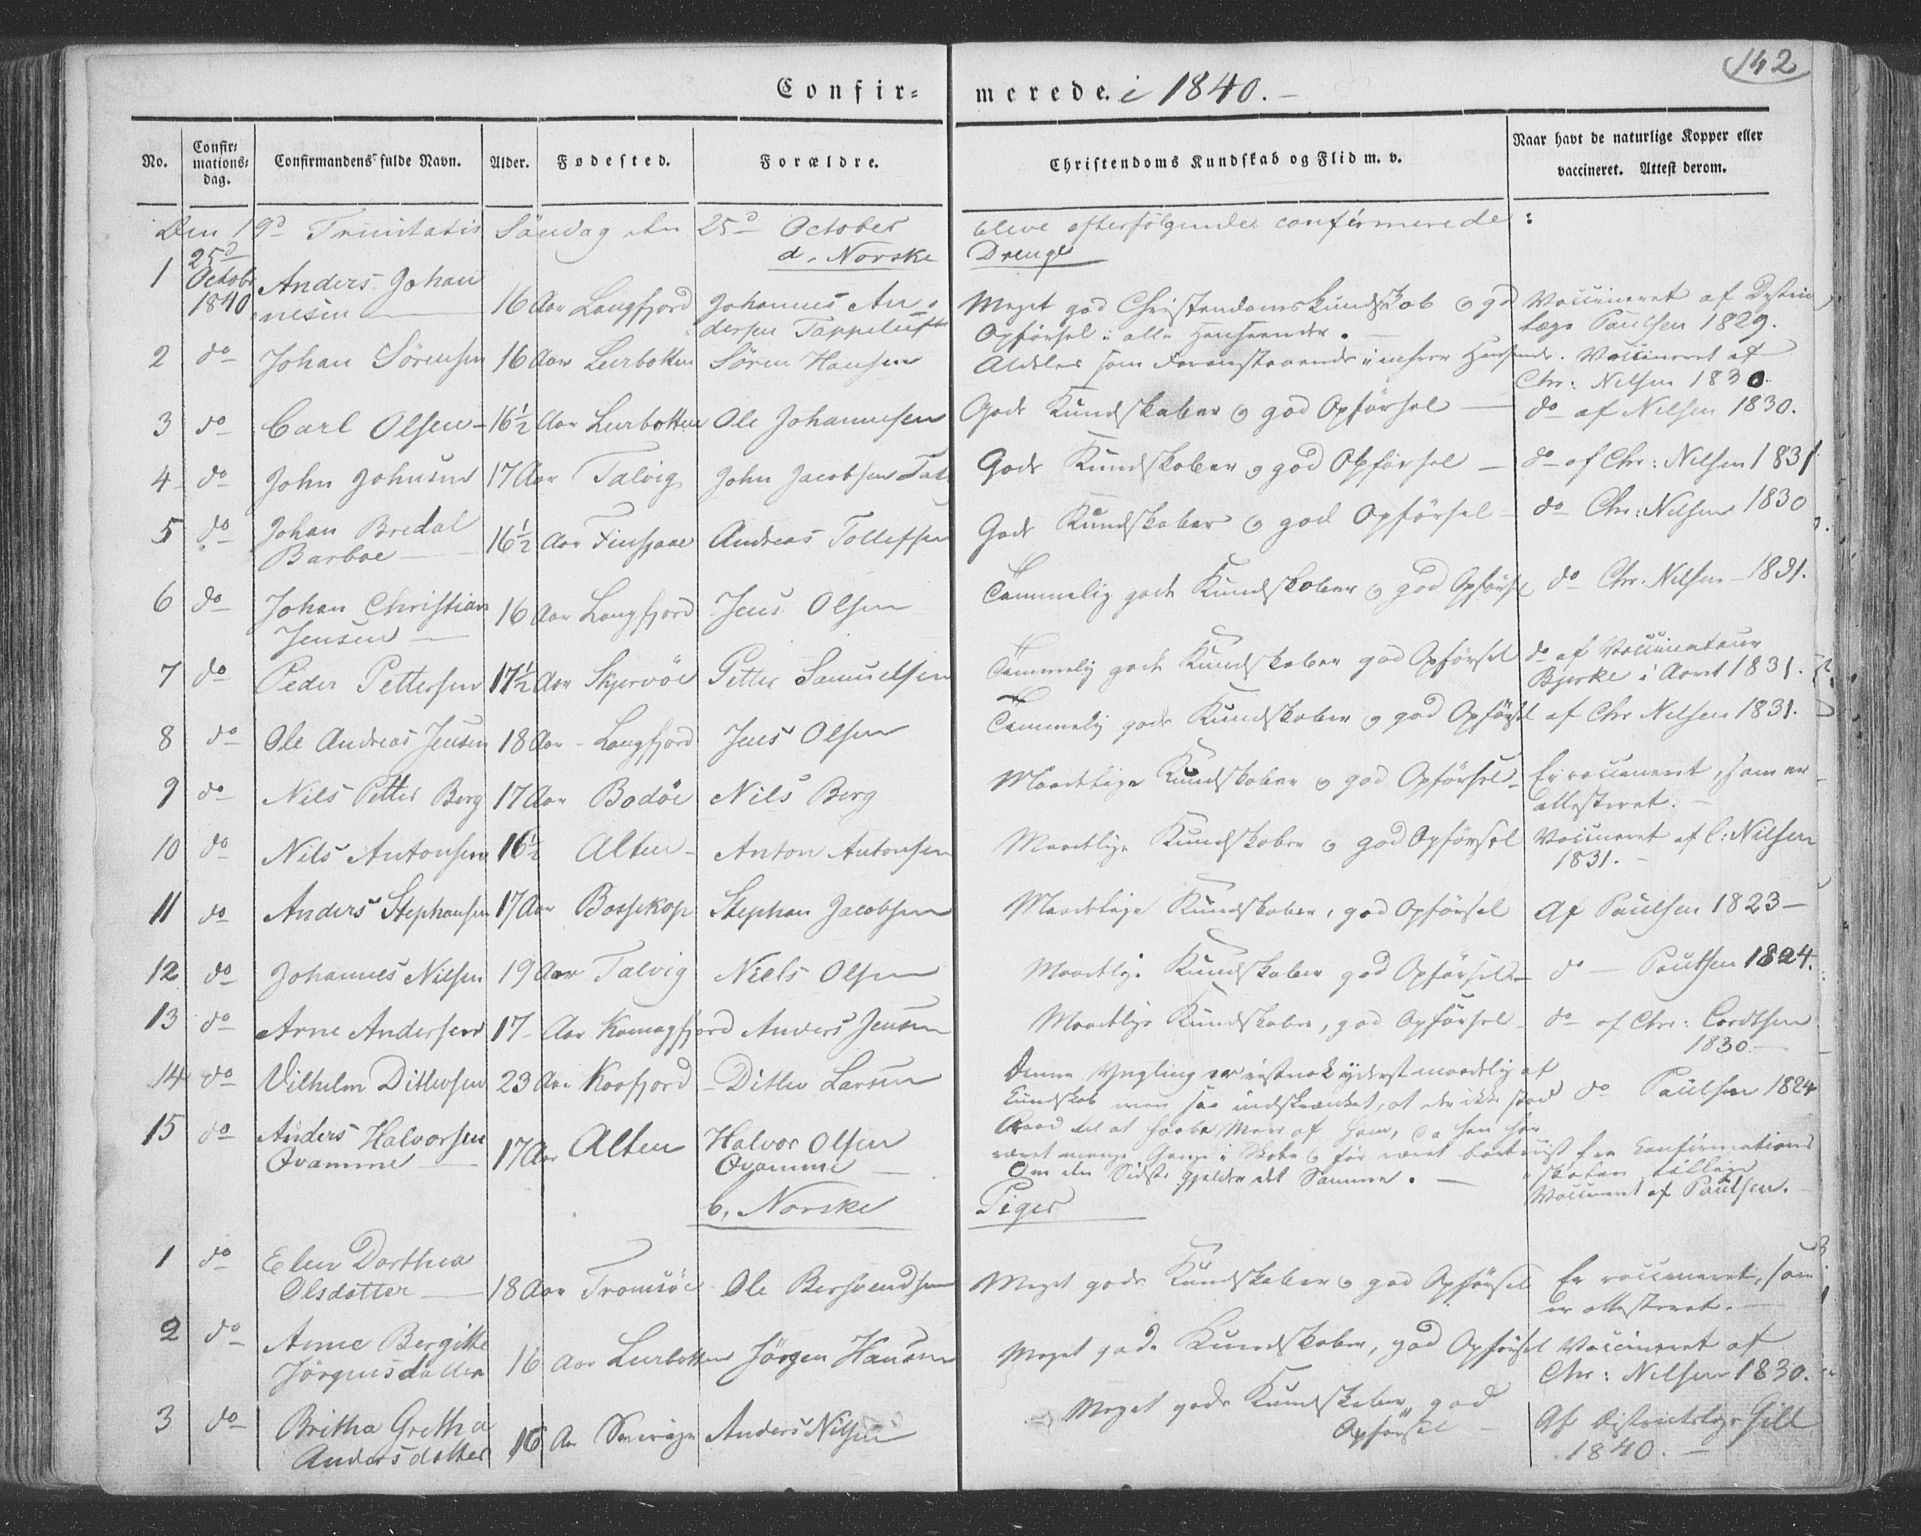 142
Confir- merede. i 1840.
No. Confir- mations- dag. Confirmandens fulde Navn. Alder. Fødested. Forældre. Christendoms Kundskab og Flid m. v. Naar havt de naturlige Kopper eller vaccineret. Attest derom.
Den 19d Trinitatis Søndag den 25d October bleve efterfølgende confirmerede:
d. Norske Drenge
1 25d Octobr 1840 Anders Johan
nesen 16 Aar Langfjord Johannes An- Meget god Christendomskundskab og god Vaccineret af Distrikts
dersen Tappeluft Opførsel i alle Henseender. læge Paulsen 1829.
2 do Johan Sørensen 16 Aar Lerbotten Søren Hansen Aldeles som Foranstaaende i enhver Henseende. Vaccineret af
Chr: Nilsen 1830.
3 do Carl Olsen 16½ Aar Lerbotten Ole Johannesen Gode Kundskaber og god Opførsel do af Nilsen 1830.
4 do John Johnsen 17 Aar Talvig John Jacobsen Gode Kundskaber og god Opførsel do af Chr: Nilsen 1831
5 do Johan Bredal
Barboe 16½ Aar Andreas Tollefsen Gode Kundskaber og god Opførsel do Chr: Nilsen 1830
6 do Johan Christian
Jensen 16 Aar Langfjord Jens Olsen Temmelig gode Kundskaber og god Opførsel do Chr. Nilsen 1831.
7 do Peder Pettersen 17½ Aar Skjervöe Petter Samuelsen Temmelig gode Kundskaber god Opførsel do af Vaccinateur
Bjerke i Aaret 1831.
8 do Ole Andreas Jensen 18 Aar Langfjord Jens Olsen Temmelig gode Kundskaber og god Opførsel af Chr Nilsen 1831.
9 do Nils Petter Berg 17 Aar Bodöe Nils Berg Maadelige Kundskaber og god Opførsel Er vaccineret, som er
attesteret.
10 do Nils Antonsen 16½ Alten Anton Antonsen Maadelige Kundskaber og god Opførsel Vaccineret af C: Nilsen
1831.
11 do Anders Stephansen 17 Aar Bossekop Stephan Jacobsen Maadelige Kundskaber, god Opførsel Af Paulsen 1823
12 do Johannes Nilsen 19 Aar Talvig Niels Olsen Maadelige Kundskaber god Opførsel do Paulsen 1824.
13 do Arne Andersen 17 Aar Komagfjord Anders Jensen Maadelige Kundskaber, god Opførsel do af Chr: Cordtsen
1830
14 do Vilhelm Ditlevsen 23 Aar Kaafjord Ditlev Larsen Denne Yngling er vistnok yderst maadelig af
Kundskab men saa indskrænket, at der ikke do Paulsen 1824
15 do Anders Halvorsen
Qvamme 17 Aar Alten Halvor Olsen
Qvamme Raad til at haabe Mere af ham, da han har
været mange Gange i Skole og før været bortviist fra Confirmations
Om den Sidste gjelder det Samme. skolen tillige
Vaccineret af Paulsen.
b. Norske Piger
1 do Elen Dorthea
Olsdatter 18 Aar Tromsöe Ole Bersvendsen Meget gode Kundskaber og god Opførsel Er vaccineret, som
er attesteret.
2 do Anne Bergitte
Jørgensdatter 16 Aar Lerbotten Jørgen Hansen Meget gode Kundskaber, god Opførsel Vaccineret af
Chr: Nilsen 1830.
3 do Britha Gretha
Andersdatter 16 Aar Anders Nilsen Meget gode Kundskaber, god
Opførsel Af Districtslæge Gill
1840.